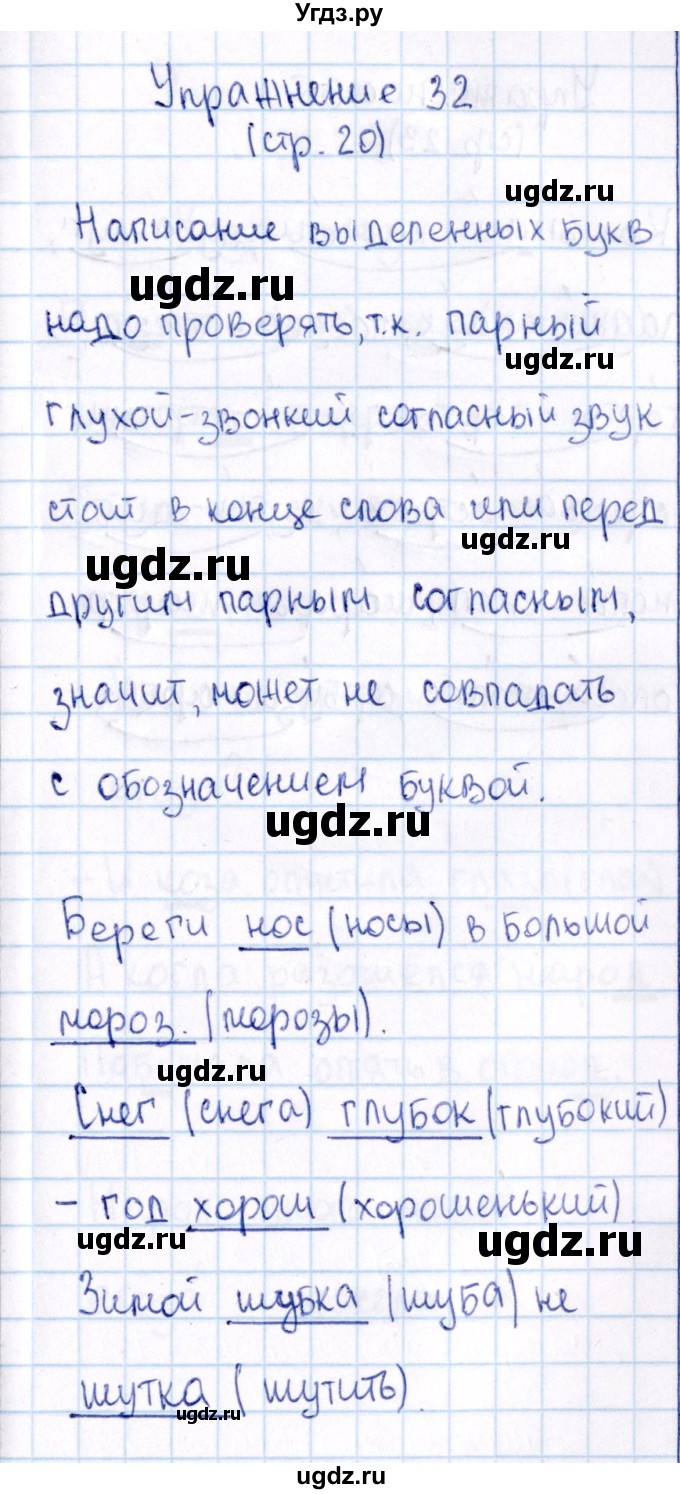 Угдз.ру
Упражнение 32
(стр. 20)
ugdz.ru
Написание выделенных букв
ugdz.ru
надо проверять, т.к. парный
ugdz.ru
глухой-звонкий согласный звук
стоит в конце слова или перед
ugdz.ru
ugdz.ru
другим парным согласным,
значит, может не совпадать
с обозначением буквой.
ugdz.ru
Береги нос (носы) в большой
мороз. (морозы).
ugdz.ru
Снег (снега) глубок (глубокий)
- год хорош (хорошенький).
ugdz.ru
ugdz.ru
Зимой шубка (шуба) не
шутка (шутить).
ugdz.ru
ugdz.ru